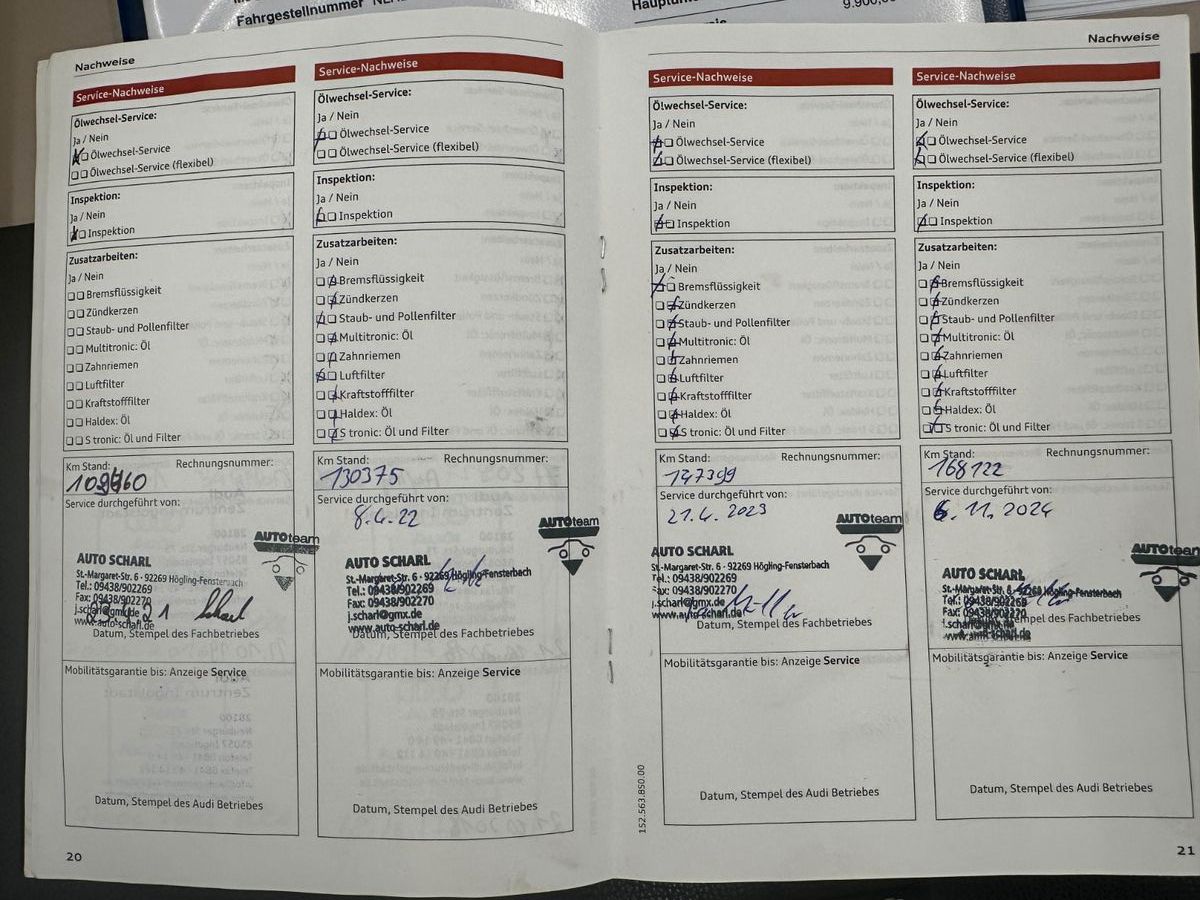 Fahrgestellnummer
9.900,
Nachweise
Service-Nachweise
Ölwechsel-Service:
Ja / Nein
Ölwechsel-Service
Ölwechsel-Service (flexibel)
Inspektion:
Ja / Nein
Inspektion
Zusatzarbeiten:
Ja / Nein
Bremsflüssigkeit
Zündkerzen
Staub- und Pollenfilter
Multitronic: Öl
Zahnriemen
Luftfilter
Kraftstofffilter
Haldex: Öl
S tronic: Öl und Filter
Km Stand:
Rechnungsnummer:
Service durchgeführt von:
AUTOteam
AUTO SCHARL
St.-Margaret-Str. 6 · 92269 Högling-Fensterbach
Tel.: 09438/902269
Fax: 09438/902270
j.scharl@gmx.de
www.auto-scharl.de
Datum, Stempel des Fachbetriebes
Mobilitätsgarantie bis: Anzeige Service
Datum, Stempel des Audi Betriebes
20
Service-Nachweise
Ölwechsel-Service:
Ja / Nein
Ölwechsel-Service
Ölwechsel-Service (flexibel)
Inspektion:
Ja / Nein
Inspektion
Zusatzarbeiten:
Ja / Nein
Bremsflüssigkeit
Zündkerzen
Staub- und Pollenfilter
Multitronic: Öl
Zahnriemen
Luftfilter
Kraftstofffilter
Haldex: Öl
S tronic: Öl und Filter
Km Stand:
Rechnungsnummer:
130375
Service durchgeführt von:
8.4.22
AUTOteam
AUTO SCHARL
St.-Margaret-Str. 6 · 92269 Högling-Fensterbach
Tel.: 09438/902269
Fax: 09438/902270
j.scharl@gmx.de
www.auto-scharl.de
Datum, Stempel des Fachbetriebes
Mobilitätsgarantie bis: Anzeige Service
Datum, Stempel des Audi Betriebes
Nachweise
Service-Nachweise
Ölwechsel-Service:
Ja / Nein
Ölwechsel-Service
Ölwechsel-Service (flexibel)
Inspektion:
Ja / Nein
Inspektion
Zusatzarbeiten:
Ja / Nein
Bremsflüssigkeit
Zündkerzen
Staub- und Pollenfilter
Multitronic: Öl
Zahnriemen
Luftfilter
Kraftstofffilter
Haldex: Öl
S tronic: Öl und Filter
Km Stand:
Rechnungsnummer:
147399
Service durchgeführt von:
21.4.2023
AUTOteam
AUTO SCHARL
St.-Margaret-Str. 6 · 92269 Högling-Fensterbach
Tel.: 09438/902269
Fax: 09438/902270
j.scharl@gmx.de
www.auto-scharl.de
Datum, Stempel des Fachbetriebes
Mobilitätsgarantie bis: Anzeige Service
Datum, Stempel des Audi Betriebes
152.563.850.00
Service-Nachweise
Ölwechsel-Service:
Ja / Nein
Ölwechsel-Service
Ölwechsel-Service (flexibel)
Inspektion:
Ja / Nein
Inspektion
Zusatzarbeiten:
Ja / Nein
Bremsflüssigkeit
Zündkerzen
Staub- und Pollenfilter
Multitronic: Öl
Zahnriemen
Luftfilter
Kraftstofffilter
Haldex: Öl
S tronic: Öl und Filter
Km Stand:
Rechnungsnummer:
168122
Service durchgeführt von:
6.11.2024
AUTOteam
AUTO SCHARL
St.-Margaret-Str. 6 · 92269 Högling-Fensterbach
Tel.: 09438/902269
Fax: 09438/902270
j.scharl@gmx.de
Stempel des Fachbetriebes
Mobilitätsgarantie bis: Anzeige Service
Datum, Stempel des Audi Betriebes
21